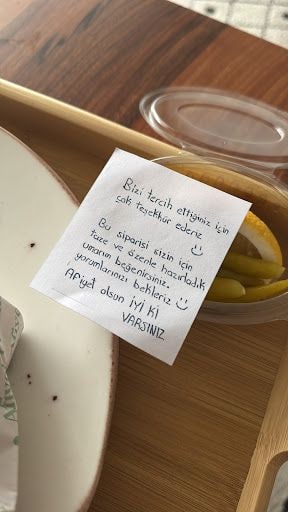 Bizi tercih ettiğiniz için
çok teşekkür ederiz
☺
Bu siparişi sizin için
taze ve özenle hazırladık
umarım beğenirsiniz,
yorumlarınızı bekleriz ☺
Afiyet olsun İYİ Kİ
VARSINIZ